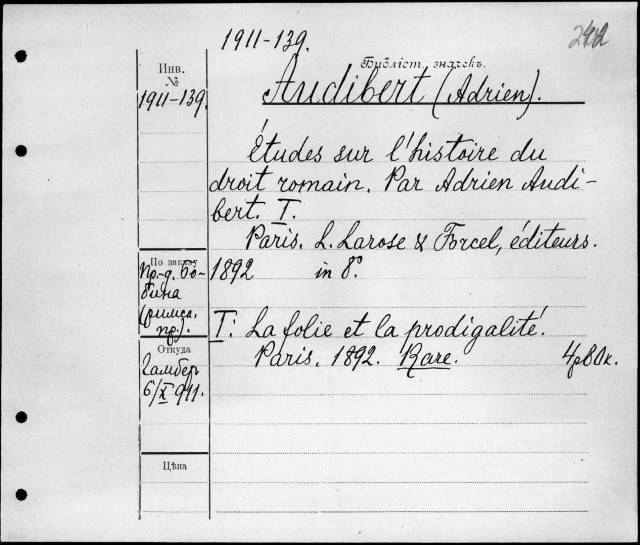 1911-139.
242
Библіот. значекъ.
Инв.
№
1911-139.
Audibert (Adrien).
Études sur l'histoire du
droit romain. Par Adrien Audi-
bert. I.
Paris. L. Larose & Forcel, éditeurs.
1892 in 8°.
По заказу
Пр.-д. Бо-
бина
(римск.
пр.).
I: La folie et la prodigalité.
Paris. 1892. Rare. 4р80к.
Откуда
Гамбер
6/X 911.
Цѣна